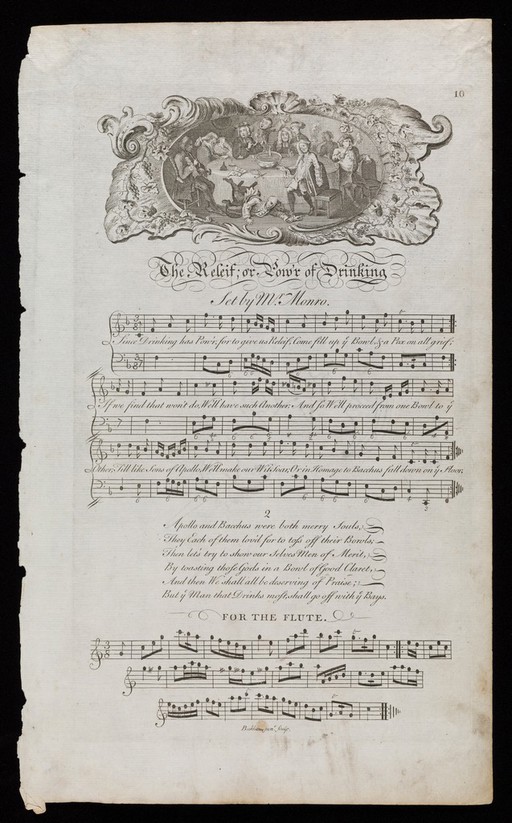 10
The Releif; or Pow'r of Drinking
Set by Mr. Monro.
Since Drinking has Pow'r, for to give us Releif, Come fill up ÿ Bowl, & a Pox on all grief;
If we find that won't do, We'll have such Another. And so We'll proceed from one Bowl to ÿ
other: Till like Sons of Apollo, We'll make our Wit Soar, Or in Homage to Bacchus fall down on ÿ Floor.
2
Apollo and Bacchus were both merry Souls,
They Each of them lov'd for to toſs off their Bowls;
Then let's try to show our Selves Men of Merit,
By toasting thoſe Gods in a Bowl of Good Claret,
And then We shall all be deserving of Praise;
But ÿ Man that Drinks moſt, shall go off with ÿ Bays.
FOR THE FLUTE.